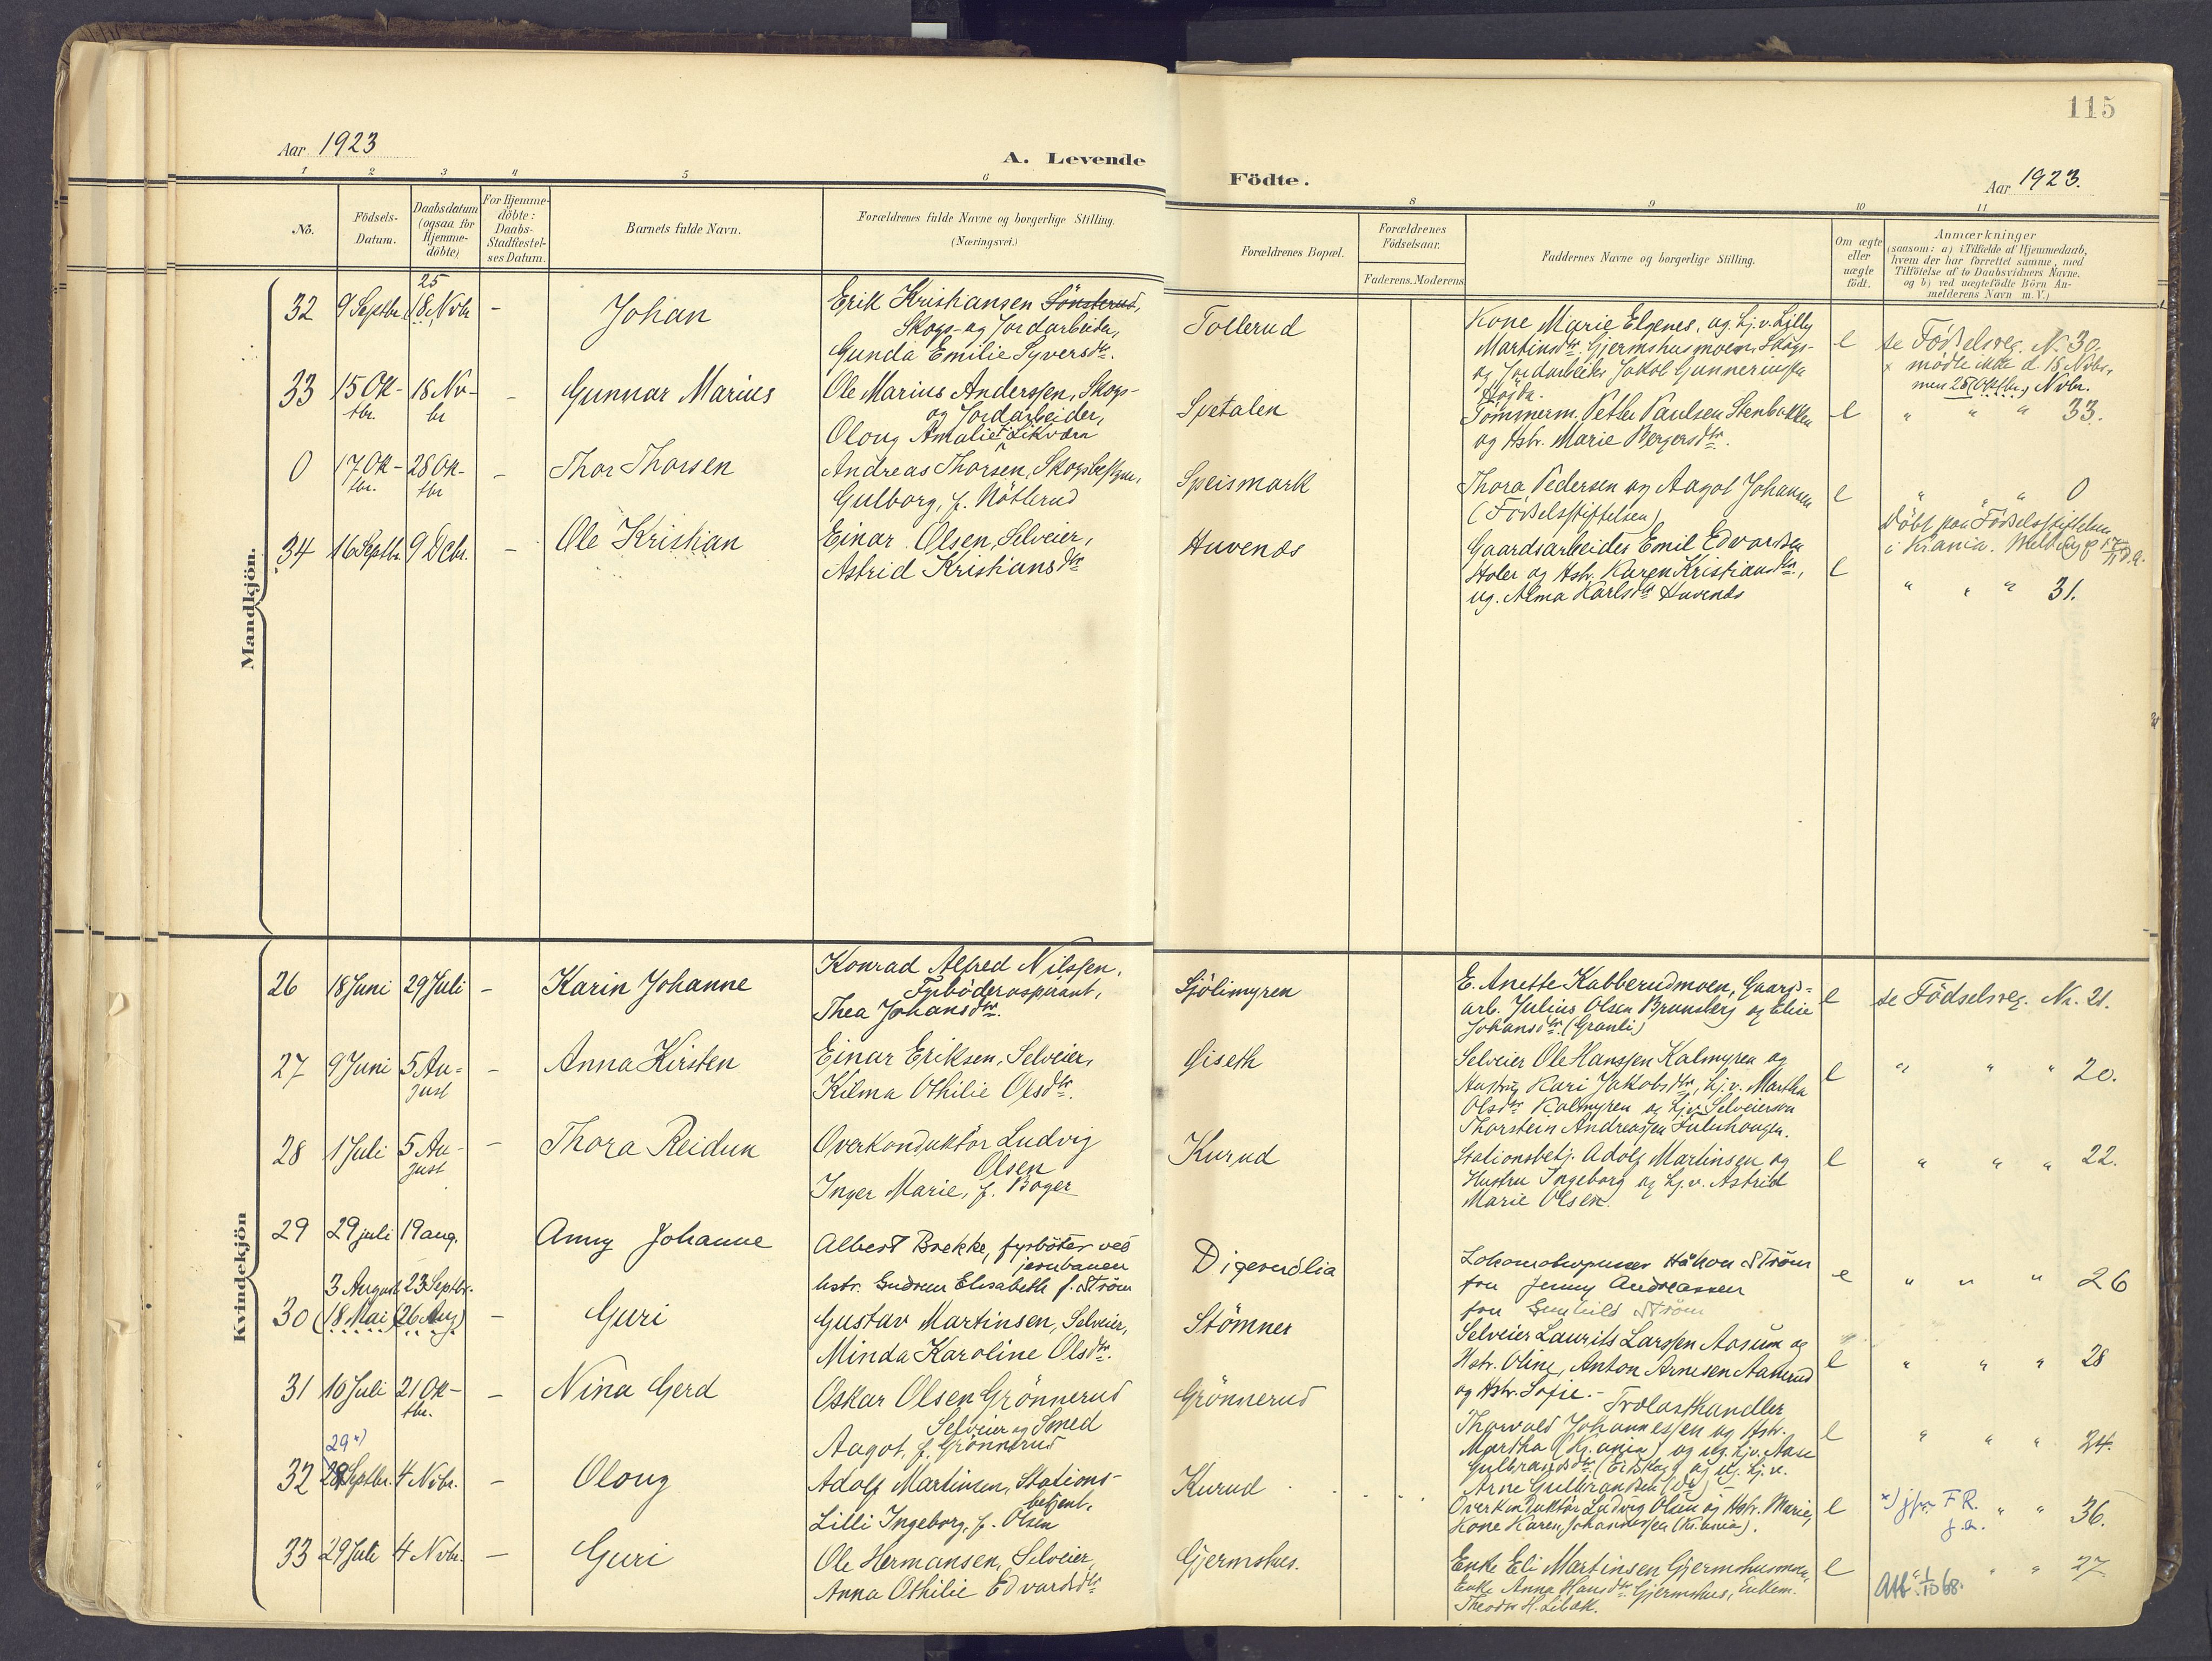 115
Aar 1923
A. Levende
Födte.
Aar 1923.
1 2 3 4 5 6
8 9 10 11
No.
Födsels-
Datum.
Daabsdatum
(ogsaa for
Hjemme-
döbte)
For Hjemme-
döbte:
Daabs-
Stadfæstel-
ses Datum.
Barnets fulde Navn.
Forældrenes fulde Navne og borgerlige Stilling.
(Næringsvei.)
Forældrenes Bopæl.
Forældrenes
Födselsaar.
Faderens. Moderens
Faddernes Navne og borgerlige Stilling.
Om ægte
eller
uægte
födt.
Anmærkninger
(saasom: a) i Tilfælde af Hjemmedaab,
hvem der har forrettet samme, med
Tilföielse af to Daabsvidners Navne.
og b) ved uægtefödte Börn An-
melderens Navn m.V.)
Mandkjön.
32 9 Septbr. 25
(18 Nvbr - Johan
Erik Kristiansen Sönsterud,
Skogs- og Jordarbeider,
Gunda Emilie Syversdtr.
Tollerud
Kone Marie Elgenes, ug. hj.v. Lilly
Martinsdtr. Gjermshusmoen, Skogs-
og Jordarbeider Jakob Gunneriusen
e
se Födselsreg. N. 30.
x mödte ikke d. 18 Nvbr,
men 25 Nvbr.
33 15 Ok-
tbr. 18 Nv-
br - Gunnar Marius
Ole Marius Anderssen, Skogs-
og Jordarbeider,
Oloug Amalie f. Likværn
Spetalen
Tömmerm. Petter Paulsen Stenbakken
og Hstr. Marie Bergersdtr.
e " " " 33.
0 17 Ok-
tbr. 28 Ok-
tbr - Thor Thorsen
Andreas Thorsen, Skogsbestyrer,
Gulborg, f. Nötlerud
Speismark
Thora Pedersen og Aagot Johansen
(Födselsstiftelsen)
e " " " 0
Döbt paa Födselsstiftelsen
i Kr.ania.
34 16 Septbr. 9 Dcbr. - Ole Kristian
Einar Olsen, Selveier,
Astrid Kristiansdtr
Huvenæs
Gaardsarbeider Emil Edvardsen
Holer og Hstr. Karen Kristiansdtr,
ug. Alma Karlsdtr Huvenæs
e " " " 31.
Kvindekjön
26 18 Juni 29 Juli - Karin Johanne
Konrad Alfred Nilssen,
Fyrböderaspirant,
Thea Johansdtr.
Sjölimyren
E. Anette Kabberudmoen, Gaards-
arb. Julius Olsen Brunsberg og Elise
Johansdtr. (Granli)
e se Födselsreg. Nr. 21.
27 9 Juni 5 Au-
gust - Anna Kirsten
Einar Eriksen, Selveier,
Kilma Othilie Olsdtr.
Öiseth
Selveier Ole Hanssen Kalmyren og
Hustru Kari Jakobsdtr, hj.v. Martha
Olsdtr Kalmyren og hjv. Selveiersøn
Thorstein Andreassen Fuluhaugen.
e " " " 20.
28 1 Juli 5 Au-
gust - Thora Reidun
Overkonduktör Ludvig
Olsen
Inger Marie, f. Boger
Kurud
Stationsbetj. Adolf Martinsen og
Hustru Ingeborg og hj.v. Astrid
Marie Olsen.
e " " " 22.
29 29 juli 19 aug. Anny Johanne
Albert Brekke, fyrböter ved
jernbanen
hstr. Gudrun Elisabeth f. Ström
Digerudlia
Håkon Ström
fru Jenny Andreassen
fru Gunhild Ström
e " " " 26
30 3 August
(18 Mai) 23 Septbr.
(26 Aug) - Guri
Gustav Martinsen, Selveier,
Minda Karoline Olsdtr.
Stömner
Selveier Laurits Larssen Aasum og
Hstr. Oline, Anton Arnesen Aamerud
og Hstr. Sofie. -
e " " " 28
31 10 Juli 21 Ok-
tbr. - Nina Gerd
Oskar Olsen Grönnerud
Selveier og Smed
Aagot, f. Grönnerud
Grönnerud
Trelasthandler
Thorvald Johannessen og Hstr.
Martha (Kr.ania) og ug. hjv. Aase
Gulbrandsdtr. (Eidskog) og ug. hj.v.
Arne Gulbrandsen (Do) -
e " " " 24.
32 29 x)
28 Septbr. 4 Nvbr. - Oloug
Adolf Martinsen, Stations-
betjent,
Lilli Ingeborg, f. Olsen
Kurud
Overkonduktör Ludvig Olsen og Hstr. Marie,
Kone Karen Johannessen (Kr.ania).
e x) jfr. F.R. " " 36.
33 29 Juli 4 Nvbr. - Guri
Ole Hermansen, Selveier,
Anna Othilie Edvardsdtr
Gjermshus.
Enke Eli Martinsen Gjermshusmoen,
Enke Anna Hansdtr Gjermshus, Enkem.
Theodor H. Libæk.
e " " 27
Att. 1/10 68.